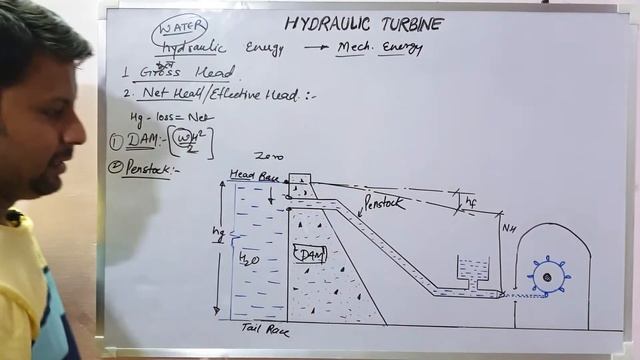 HYDRAULIC TURBINE
WATER
hydraulic Energy → Mech. Energy
1 Gross Head
2. Net Head/Effective Head :-
Hg - loss = Net
① DAM :- [wH²/2]
② Penstock :-
Zero
Head Race
Penstock
hf
NH
hg
H₂O
DAM
Tail Race